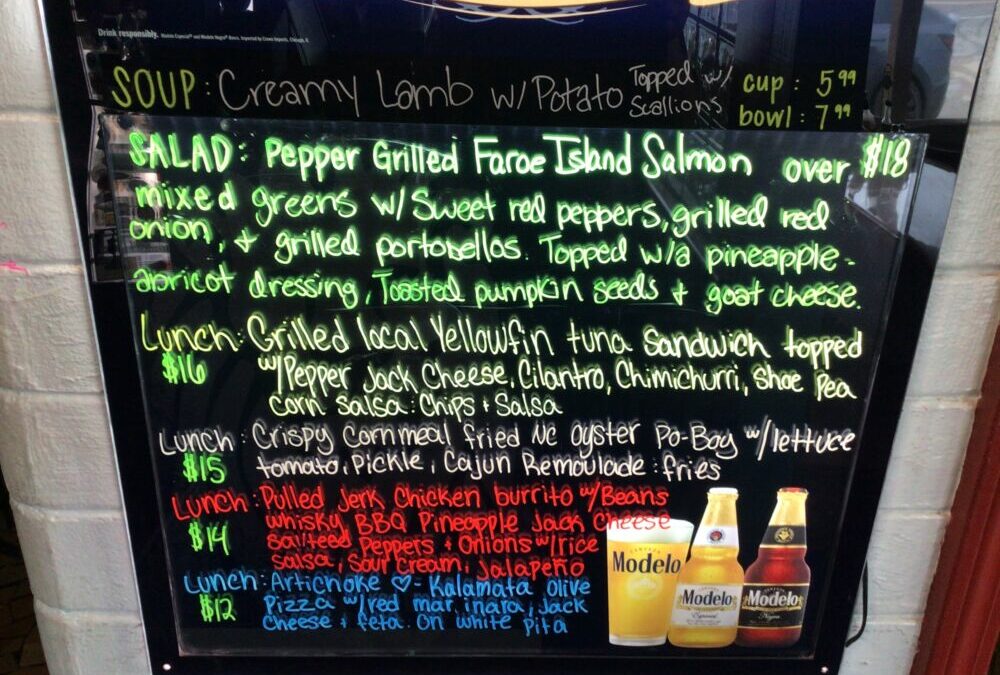 Drink responsibly. Modelo Especial® and Modelo Negra® Beers. Imported by Crown Imports, Chicago, IL
SOUP: Creamy Lamb w/Potato Topped w/ Scallions cup: 5.99
bowl: 7.99
SALAD: Pepper Grilled Faroe Island Salmon over $18
mixed greens w/Sweet red peppers, grilled red
onion, + grilled portobellos. Topped w/a pineapple-
apricot dressing, Toasted pumpkin seeds + goat cheese.
Lunch: Grilled local Yellowfin tuna Sandwich topped
$16 w/Pepper Jack Cheese, Cilantro, Chimichurri, Shoe Pea
corn salsa: Chips + Salsa
Lunch: Crispy Cornmeal fried NC Oyster Po-Boy w/lettuce
$15 tomato, Pickle, Cajun Remoulade: fries
Lunch: Pulled Jerk Chicken burrito w/Beans
whisky BBQ Pineapple Jack Cheese
$14 sauteed Peppers + Onions w/rice
salsa, Sour Cream, Jalapeño
Lunch: Artichoke ♡- Kalamata Olive
$12 Pizza w/red marinara, Jack
Cheese + feta. On white Pita
Modelo
Modelo
Especial
Modelo
Negra